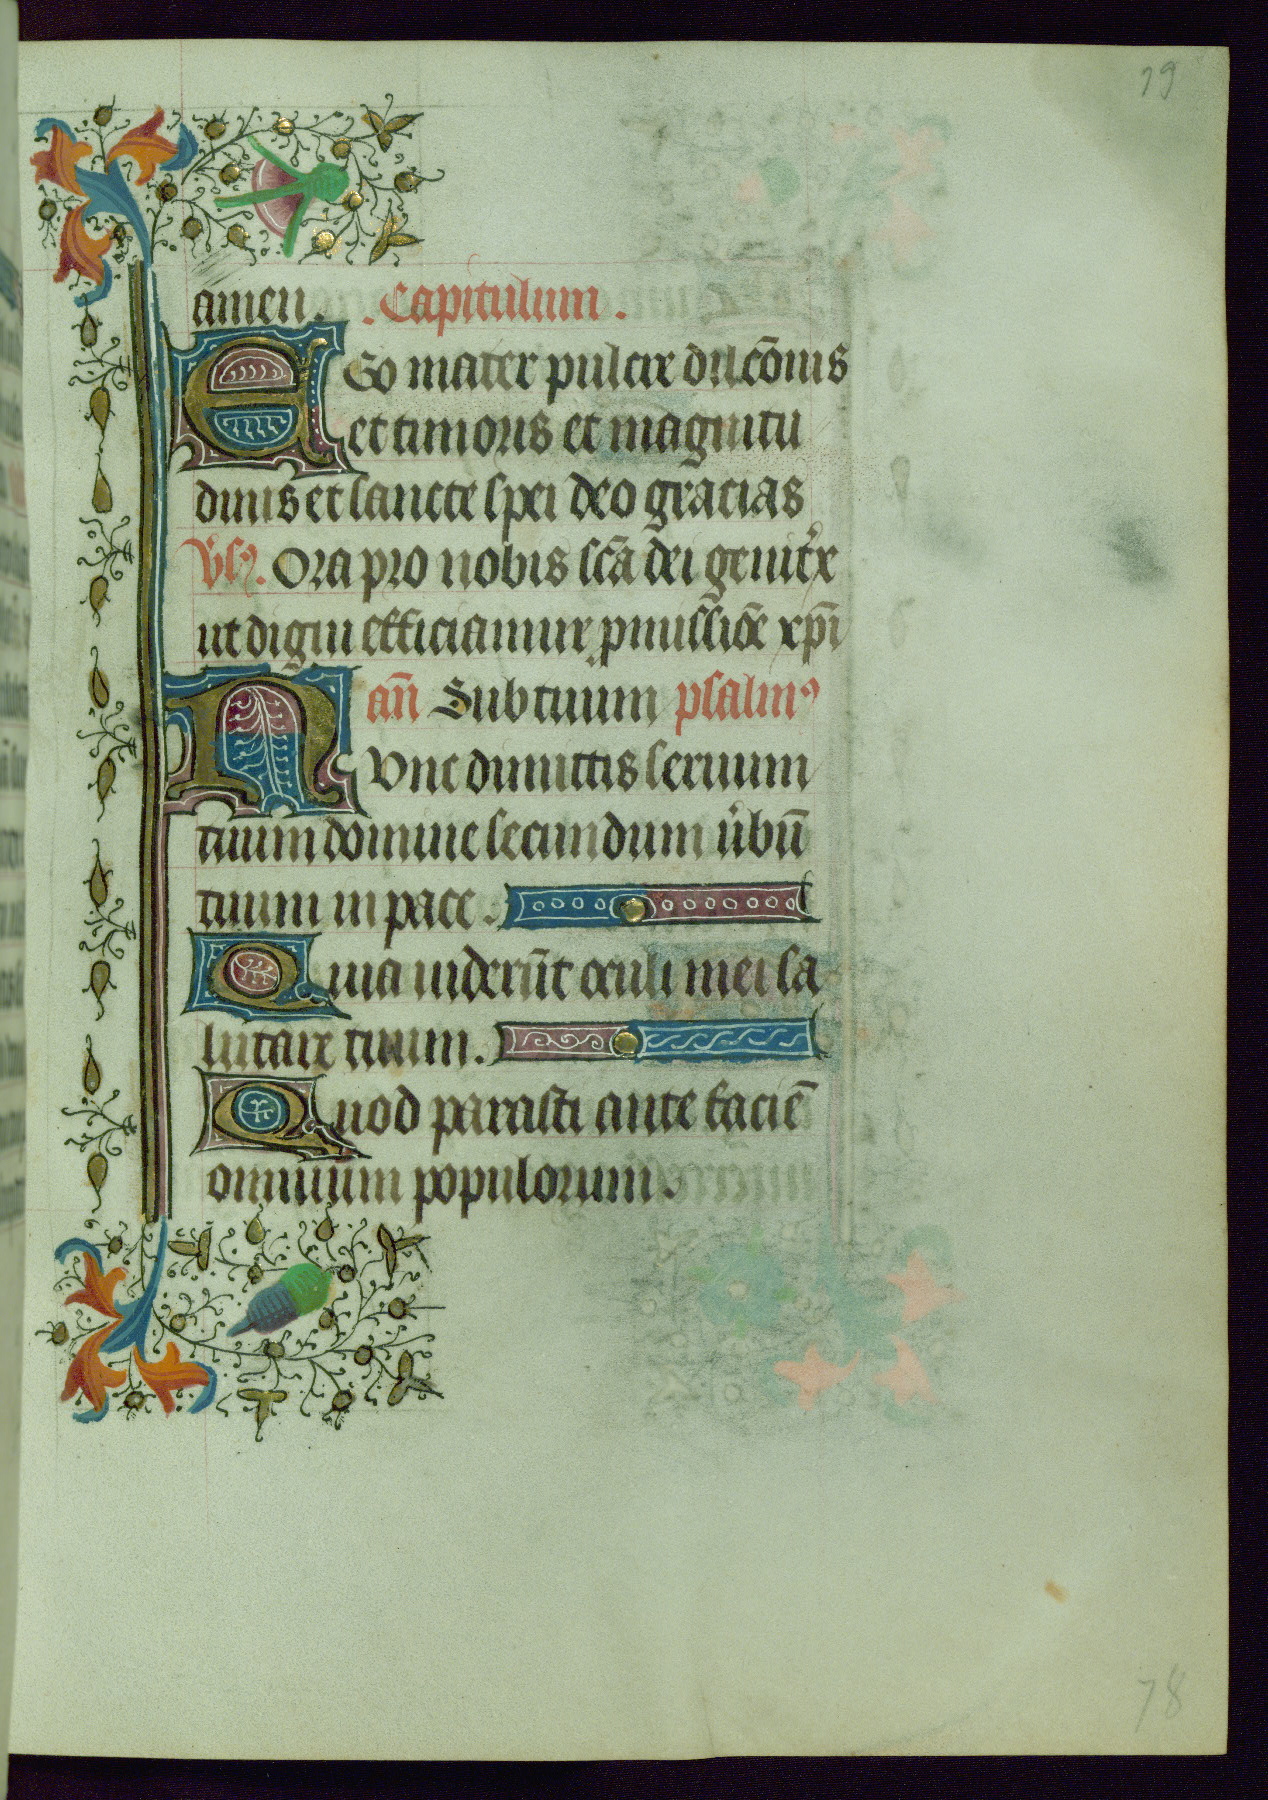 79
amen. .Capitulum.
EGo mater pulcre dilcōnis
et timoris et magnitu
dinis et sancte spei deo gracias
Vs. Ora pro nobis scā dei genitrx
ut digni efficiamur pmissiōe xpī
an̄ Sub tuum psalmꝰ
NVnc dimittis seruum
tuum domine secundum ubū
tuum in pace.
Quia uiderūt oculi mei sa
lutare tuum.
Quod parasti ante faciē
omnium populorum.
78